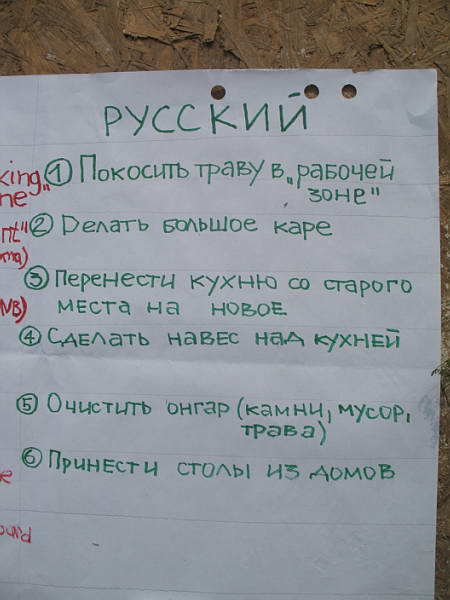 РУССКИЙ
① Покосить траву в „рабочей
зоне"
② Делать большое каре
③ Перенести кухню со старого
места на новое
④ Сделать навес над кухней
⑤ Очистить онгар (камни, мусор,
трава)
⑥ Принести столы из домов